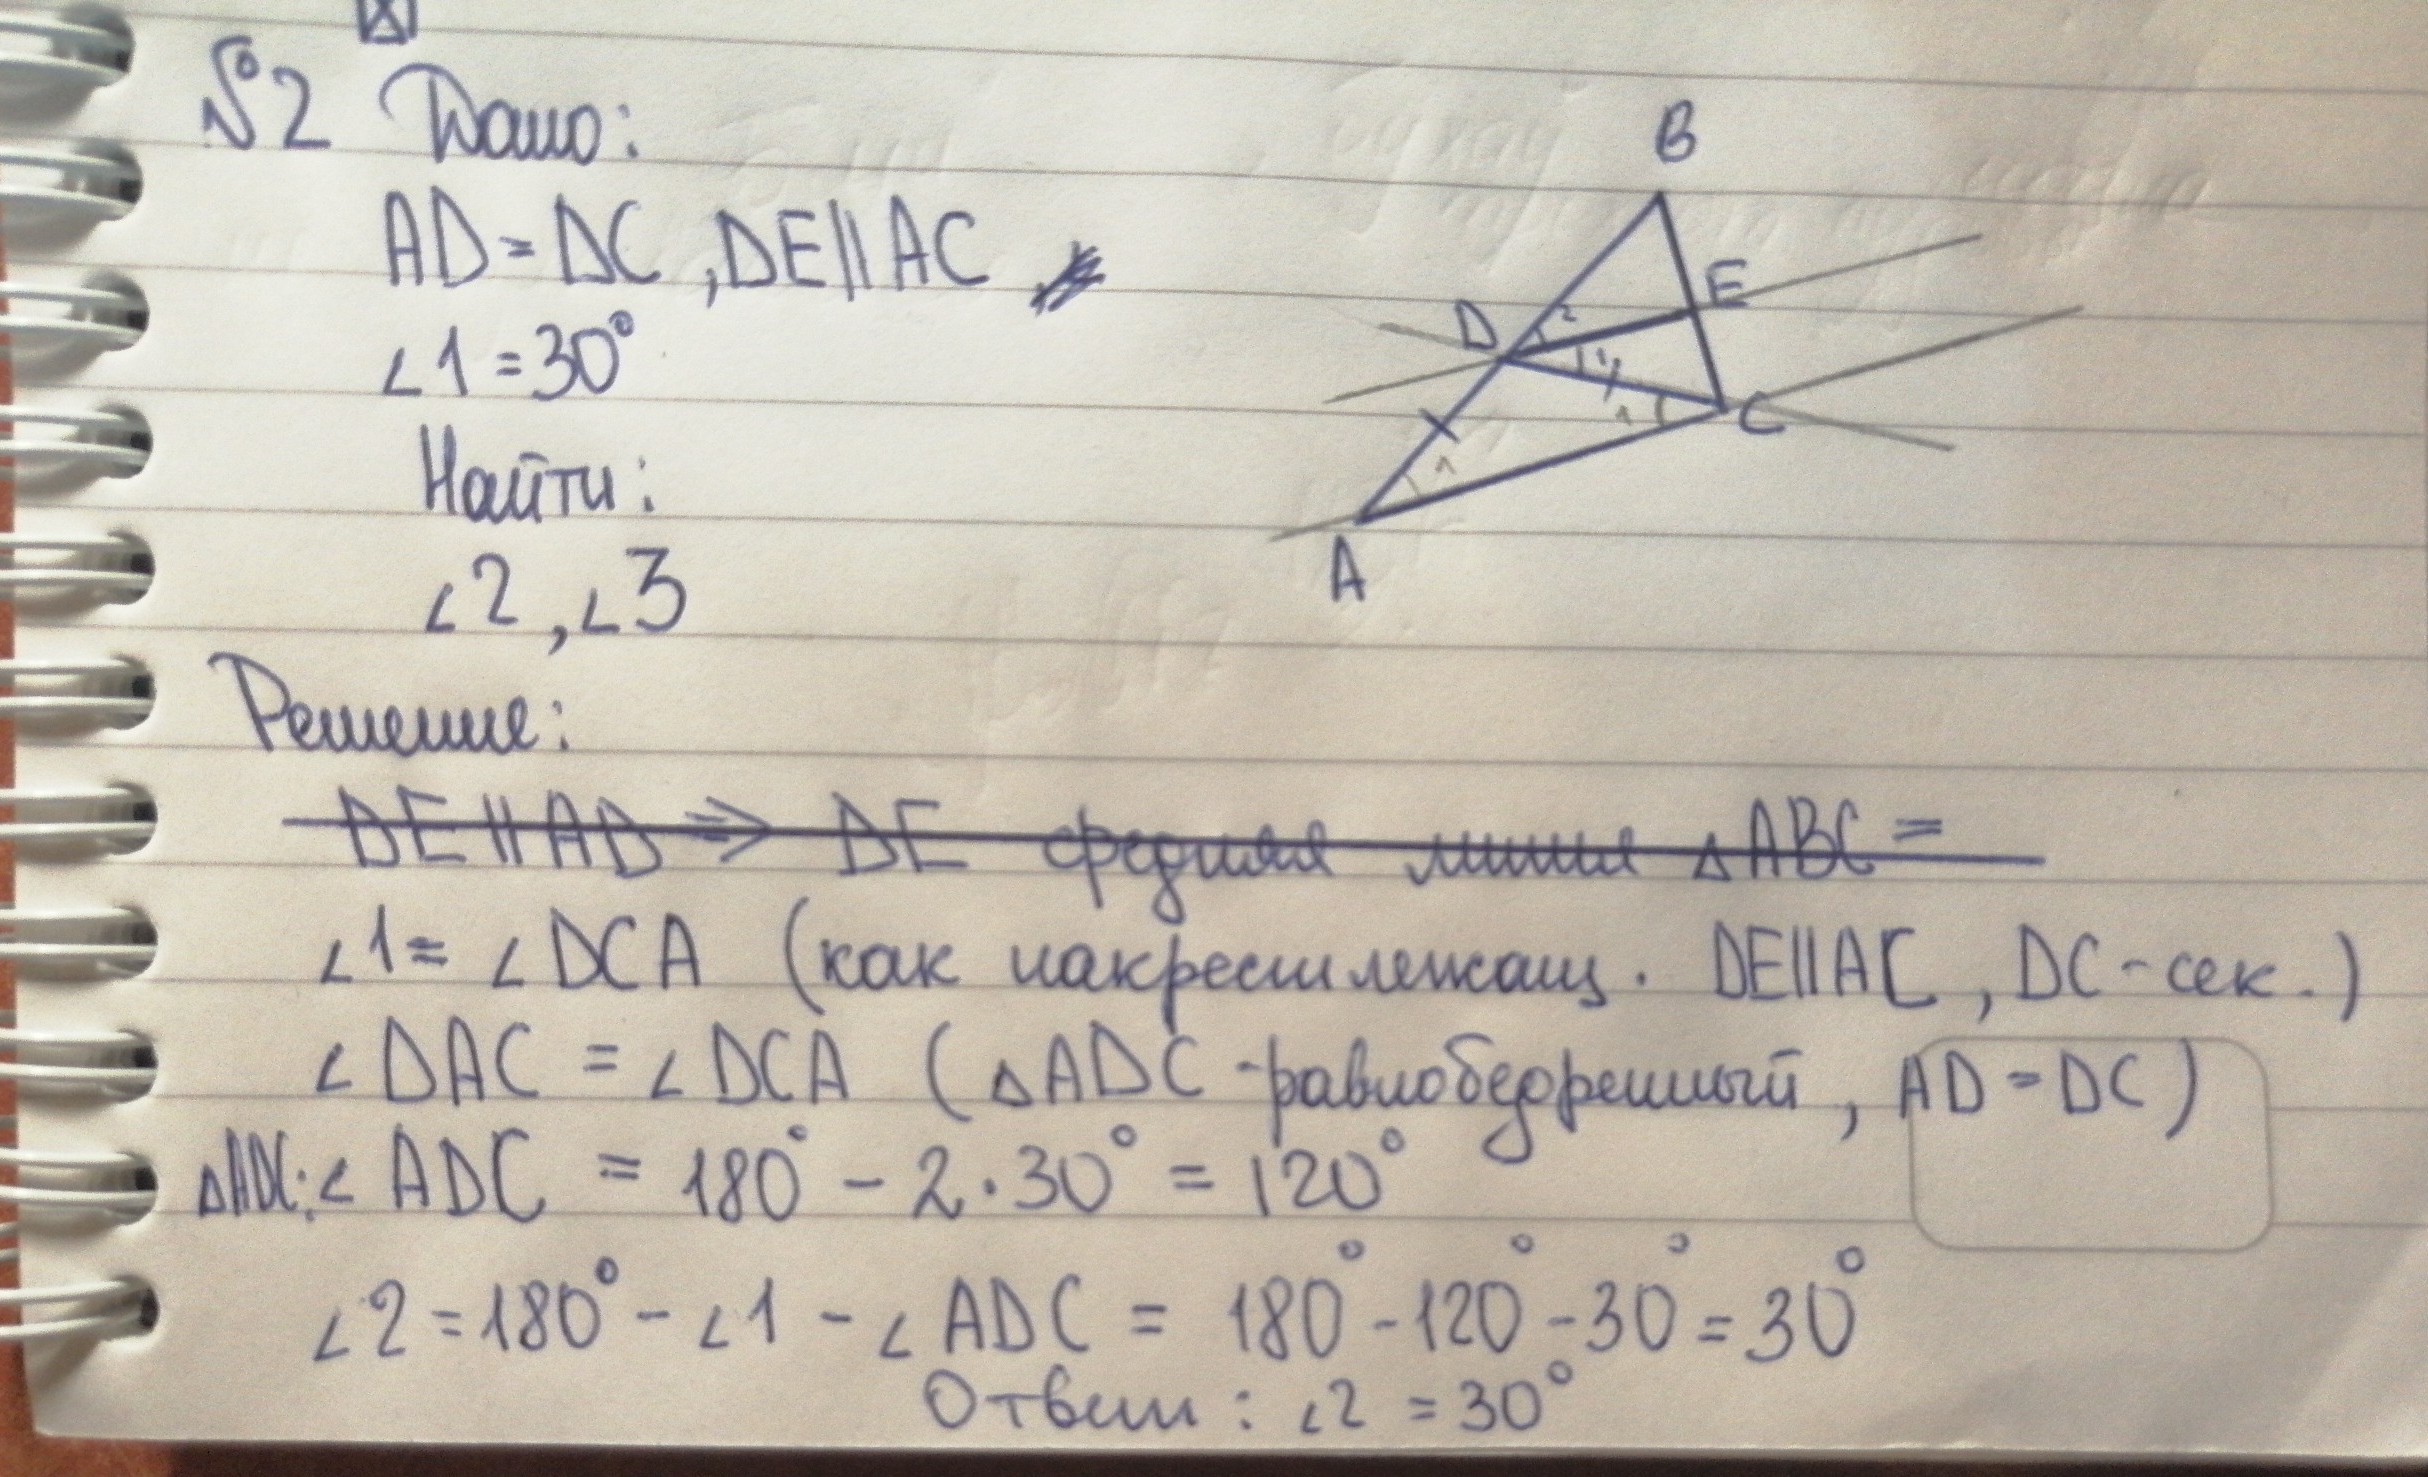 №2 Дано:
AD = DC, DE||AC
∠1 = 30°
Найти:
∠2, ∠3
B
E
D
2
1
1
C
1
A
Решение:
DE||AD => DE средняя линия △ABC =
∠1 = ∠DCA (как накрестлежащ. DE||AC, DC-сек.)
∠DAC = ∠DCA (△ADC-равнобедренный, AD=DC)
△ADC: ∠ADC = 180° - 2·30° = 120°
∠2 = 180° - ∠1 - ∠ADC = 180° - 120° - 30° = 30°
Ответ: ∠2 = 30°